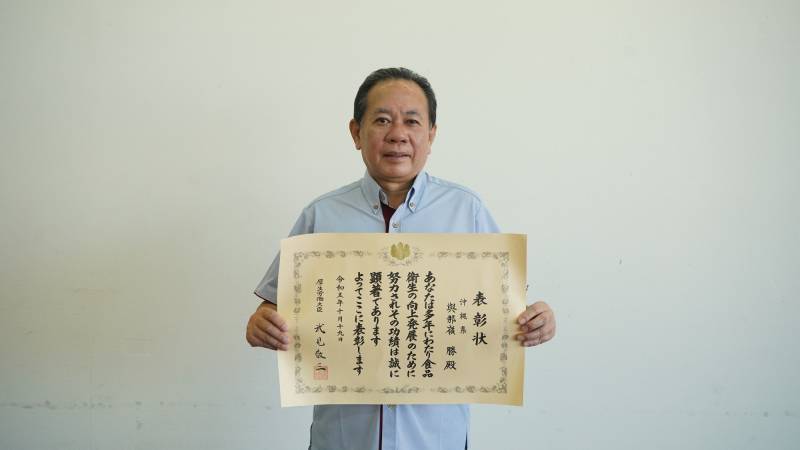 表彰状
沖縄県
與那嶺 勝 殿
あなたは多年にわたり食品
衛生の向上発展のために
努力されその功績は誠に
顕著であります
よってここに表彰します
令和五年十月十九日
厚生労働大臣
武見敬三